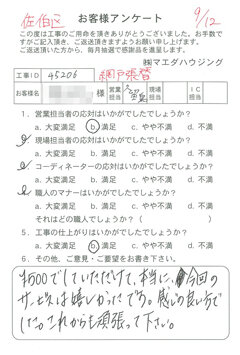 佐伯区 お客様アンケート 9/12
この度は工事のご用命を頂きありがとうございました。お手数で
すがご記入頂き、ご返送頂きますようお願い申し上げます。
ご返送頂いた方から、毎月抽選で感謝品を進呈します。
㈱マエダハウジング
工事ID 45206 網戸張替
お客様名 様 営業担当 現場担当 IC担当
1. 営業担当者の応対はいかがでしたでしょうか?
a. 大変満足 b. 満足 c. やや不満 d. 不満
2. 現場担当者の応対はいかがでしたでしょうか?
a. 大変満足 b. 満足 c. やや不満 d. 不満
3. コーディネーターの応対はいかがでしたでしょうか?
a. 大変満足 b. 満足 c. やや不満 d. 不満
4. 職人のマナーはいかがでしたでしょうか?
a. 大変満足 b. 満足 c. やや不満 d. 不満
それはどの職人でしょうか?( )
5. 工事の仕上がりはいかがでしたでしょうか?
a. 大変満足 b. 満足 c. やや不満 d. 不満
6. その他、ご意見・ご要望をお書き下さい。
¥500でしていただけて、本当に、今回の
サービスは嬉しかったです。感じの良い方で
した。これからも頑張って下さい。